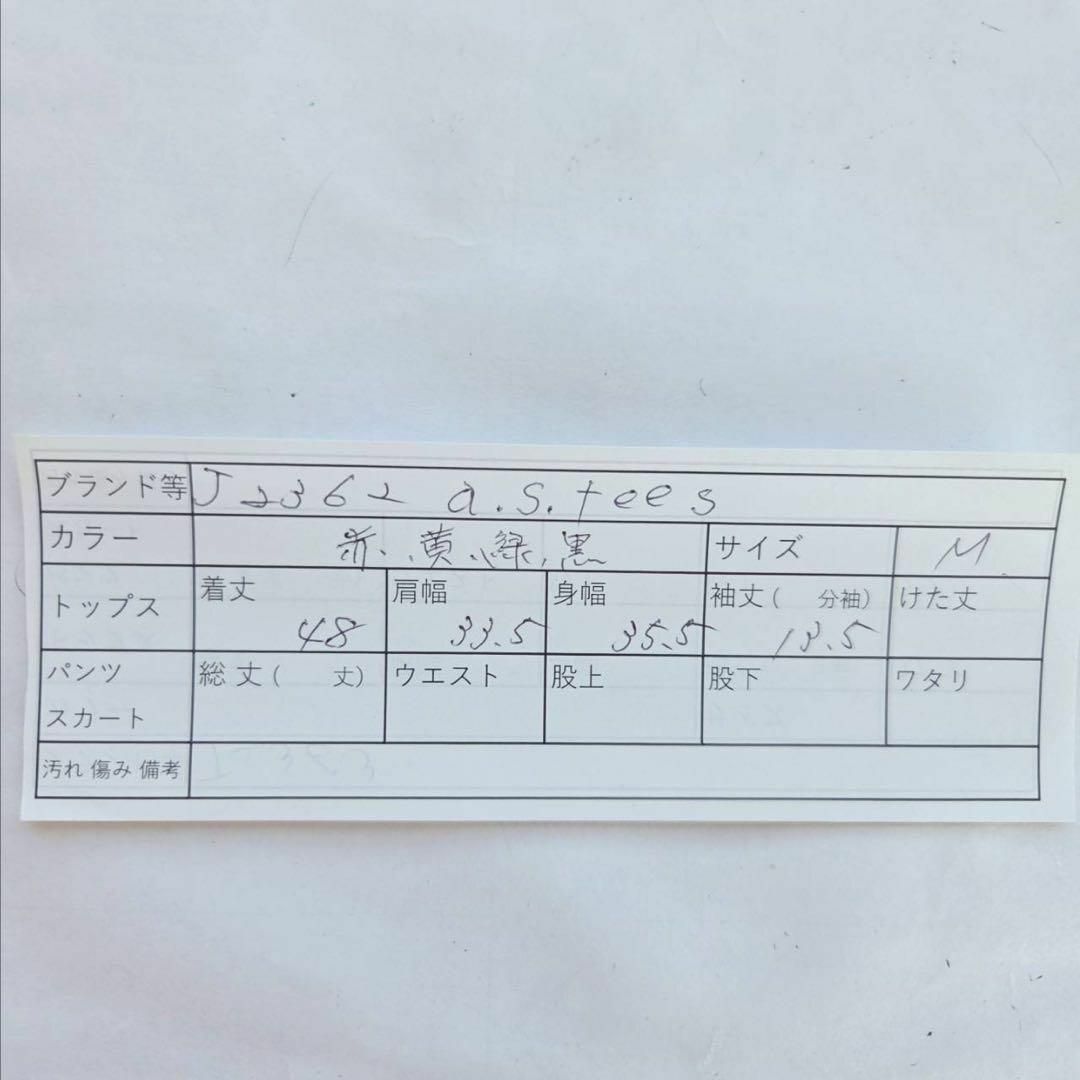 ブランド等 J2362 a.s.tees
カラー 赤、黄、緑、黒 サイズ M
トップス 着丈 48 肩幅 33.5 身幅 35.5 袖丈( 分袖) 13.5 けた丈
パンツ スカート 総丈( 丈) ウエスト 股上 股下 ワタリ
汚れ 傷み 備考